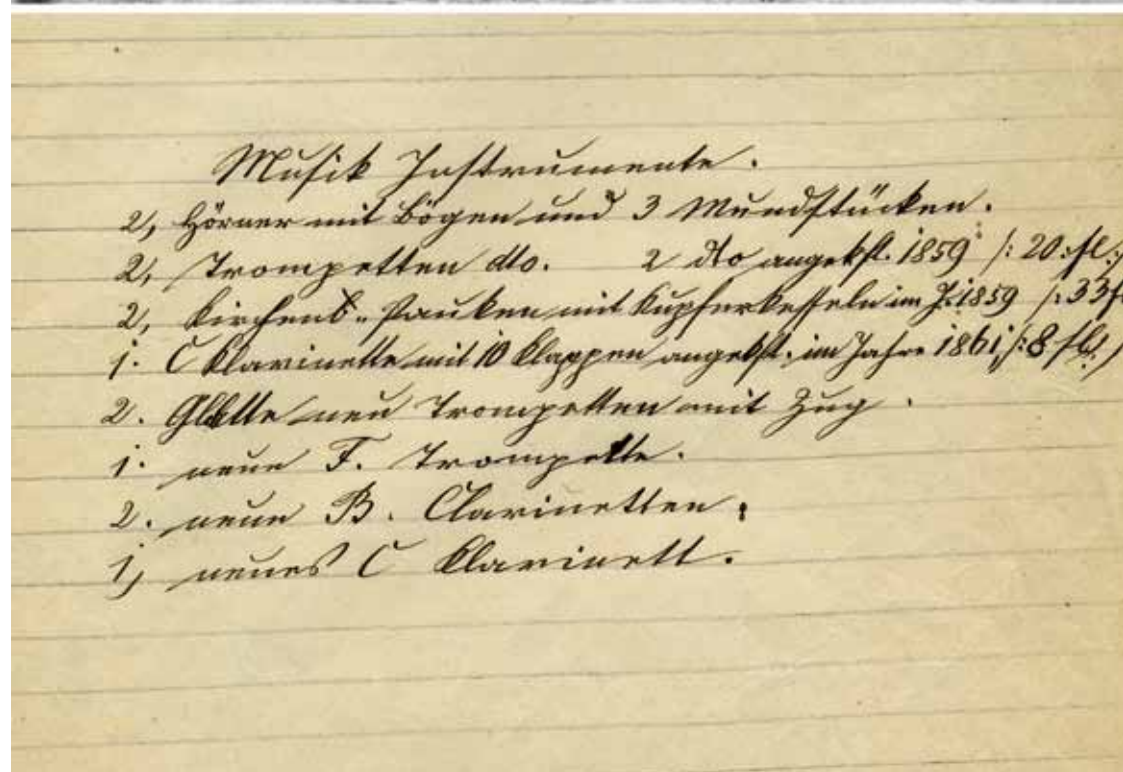 Musik Instrumente.
2, Hörner mit Bögen und 3 Mundstücken.
2, Trompetten dto. 2 dto angekft. 1859 /: 20 fl :/
2, Kirchens-Pauken mit Kupferkesseln im J. 1859 /: 33 f
1. C Klarinette mit 10 Klappen angekft. im Jahre 1861 /: 8 fl :/
2. neu Trompetten mit Zug.
1. neue F. Trompette.
2. neue B. Clarinetten.
1, neues C Klarinett.